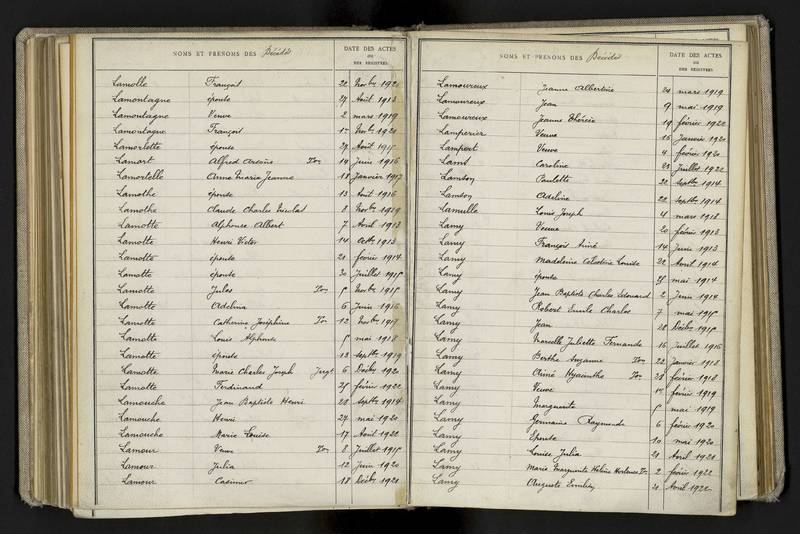 NOMS ET PRÉNOMS DES Décédés
DATE DES ACTES
OU
DES REGISTRES
Lamolle François 22 Novbre 1920
Lamontagne épouse 27 Août 1913
Lamontagne Veuve 2 mars 1919
Lamontagne François 1er Novbre 1920
Lamorlette épouse 29 Août 1915
Lamort Alfred 14 Juin 1916
Lamortelle Anne Marie Jeanne 18 Janvier 1917
Lamothe épouse 13 Août 1916
Lamothe Claude Charles Nicolas 8 Novbre 1919
Lamotte Alphonse Albert 7 Avril 1913
Lamotte Henri Victor 14 Octbre 1913
Lamotte épouse 21 février 1914
Lamotte épouse 30 Juillet 1915
Lamotte Jules Novbre 1915
Lamotte Adelina 6 Juin 1916
Lamotte Catherine Joséphine 12 Novbre 1917
Lamotte Louis Alphonse 5 mai 1918
Lamotte épouse 13 septbre 1919
Lamotte Marie Charles Joseph 6 Décbre 1920
Lamotte Ferdinand 25 février 1922
Lamouche Jean Baptiste Henri 28 septbre 1914
Lamouche Henri 27 mai 1920
Lamouche Marie Louise 17 Août 1922
Lamour Veuve 8 Juillet 1915
Lamour Julia 12 Juin 1920
Lamour Casimir 18 Décbre 1920
NOMS ET PRÉNOMS DES Décédés
DATE DES ACTES
OU
DES REGISTRES
Lamoureux Jeanne Albertine 24 mars 1919
Lamoureux Jean 9 mai 1919
Lamoureux Jeanne Thérèse 19 février 1922
Lamperier Veuve 16 Janvier 1920
Lampert Veuve 4 février 1920
Caroline 25 Juillet 1922
Lamson Paulette 22 septbre 1914
Lamson Adeline 22 septbre 1914
Lamulle Louis Joseph 4 mars 1918
Lamy Veuve 20 février 1913
Lamy François Aimé 14 Juin 1913
Lamy Madeleine Célestine Louise 22 Avril 1914
Lamy épouse 25 mai 1914
Lamy Jean Baptiste Charles Edouard 2 Juin 1914
Lamy Robert Emile Charles 7 mai 1915
Lamy Jean 28 Décbre 1915
Lamy Marcelle Juliette Fernande 16 Juillet 1916
Lamy Berthe Suzanne 22 Janvier 1918
Lamy Aimé Hyacinthe 28 février 1918
Lamy Veuve février 1919
Lamy Marguerite 5 mai 1919
Lamy Germaine Raymonde 6 février 1920
Lamy Epouse 10 mai 1920
Lamy Louise Julia 21 Avril 1920
Lamy Marie Marguerite Hélène Hortense 2 février 1922
Lamy Auguste Emilien 20 Avril 1922